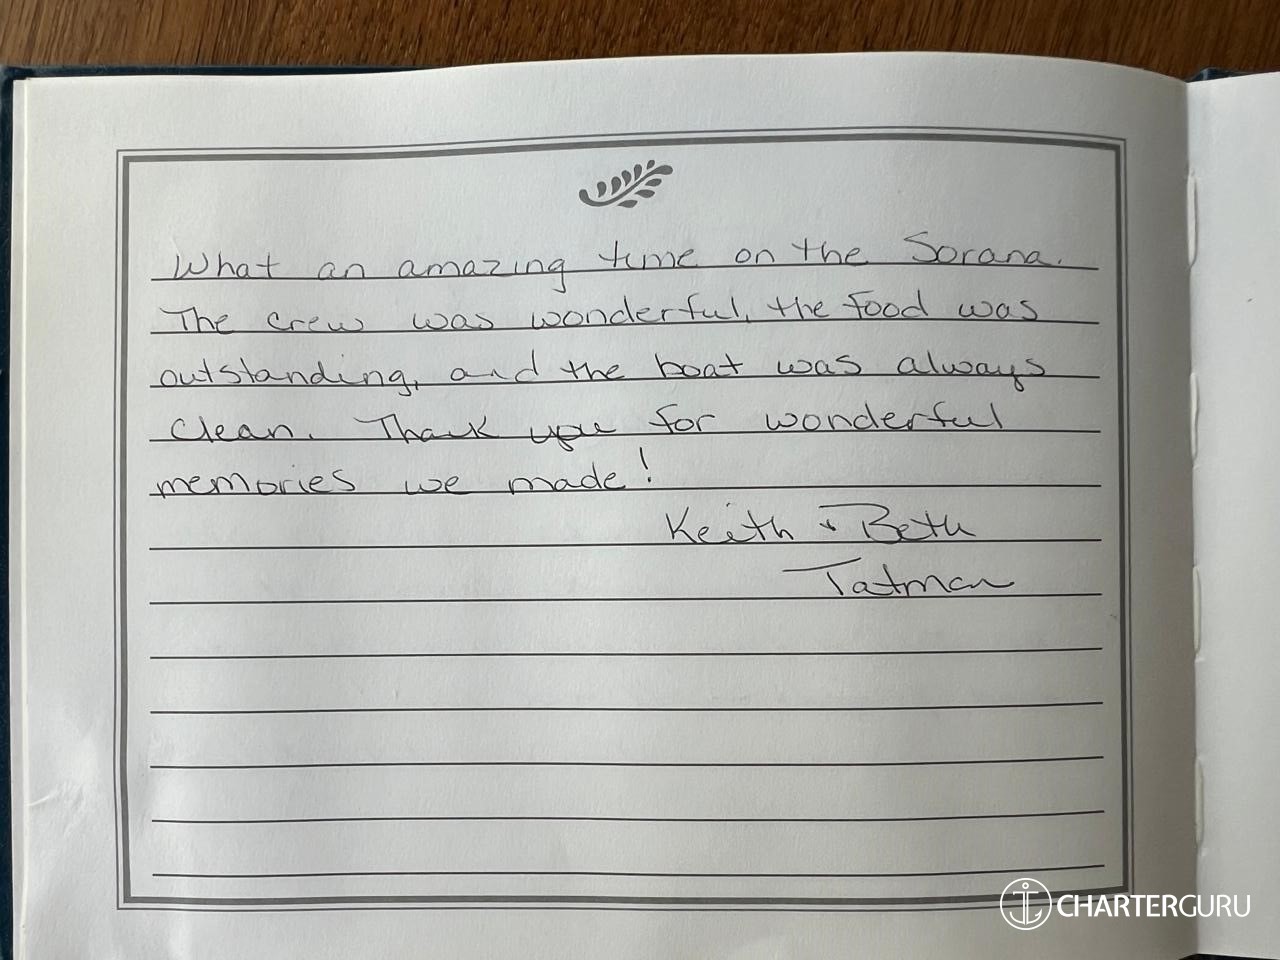 What an amazing time on the Sorana.
The crew was wonderful, the food was
outstanding, and the boat was always
clean. Thank you for wonderful
memories we made!
Keith + Beth
Tatman
CHARTERGURU